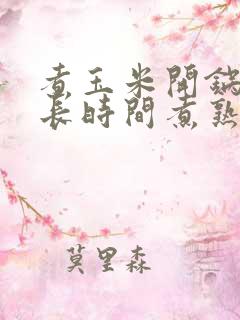 煮玉米開鍋
長時間煮熟
莫里森